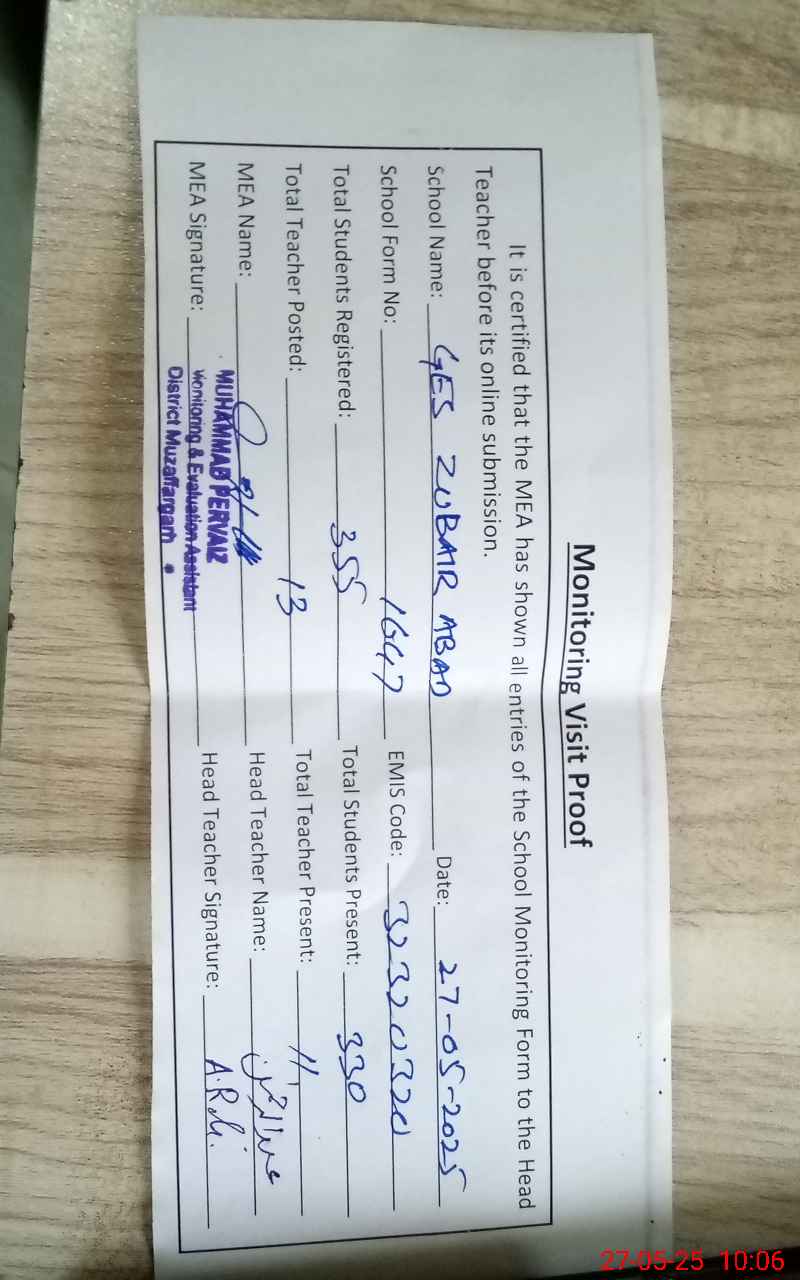 Monitoring Visit Proof
It is certified that the MEA has shown all entries of the School Monitoring Form to the Head
Teacher before its online submission.
School Name: GES ZUBAIR ABAD Date: 27-05-2025
School Form No: 1647 EMIS Code: 32320320
Total Students Registered: 355 Total Students Present: 330
Total Teacher Posted: 13 Total Teacher Present: 11
MEA Name: Head Teacher Name: عبدالرحمٰن
MEA Signature: Head Teacher Signature:
MUHAMMAD PERVAIZ
Monitoring & Evaluation Assistant
District Muzaffargarh
27-05-25 10:06